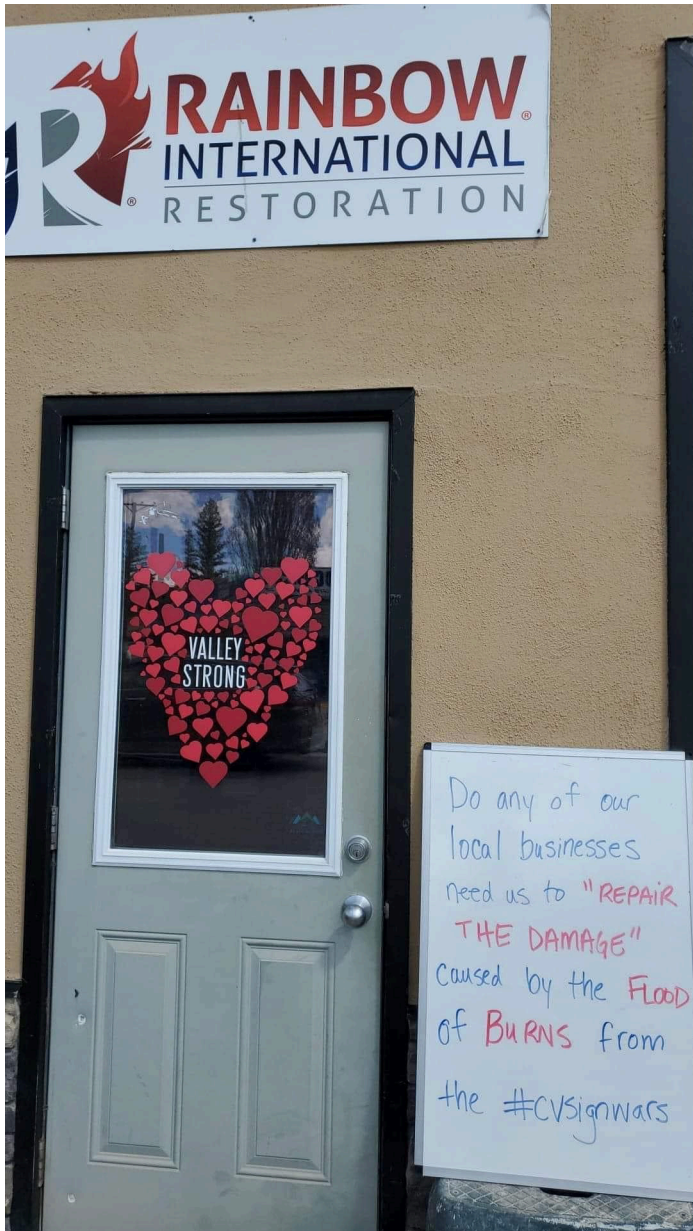 RAINBOW®
INTERNATIONAL
RESTORATION
R®
VALLEY
STRONG
Do any of our
local businesses
need us to "REPAIR
THE DAMAGE"
caused by the FLOOD
of BURNS from
the #cvsignwars